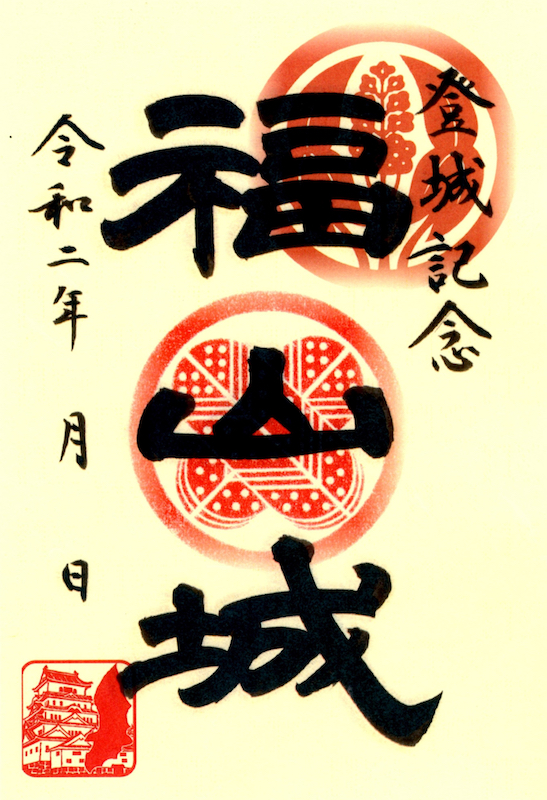 登城記念
福山城
令和二年 月 日